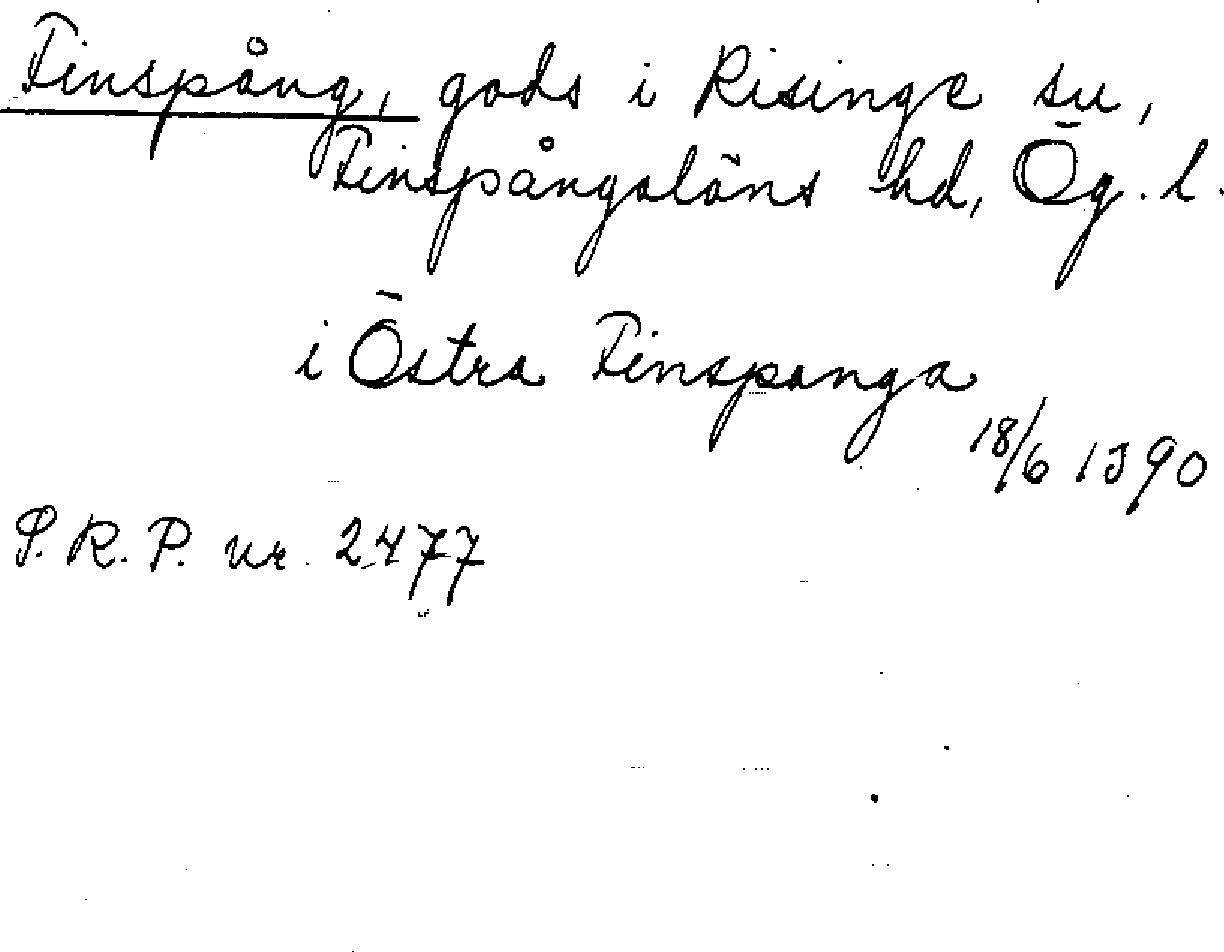 Finspång, gods i Risinge sn,
Finspångaläns hd, Ög. l.
i Östra Finspanga
18/6 1390
S.R.P. nr. 2477